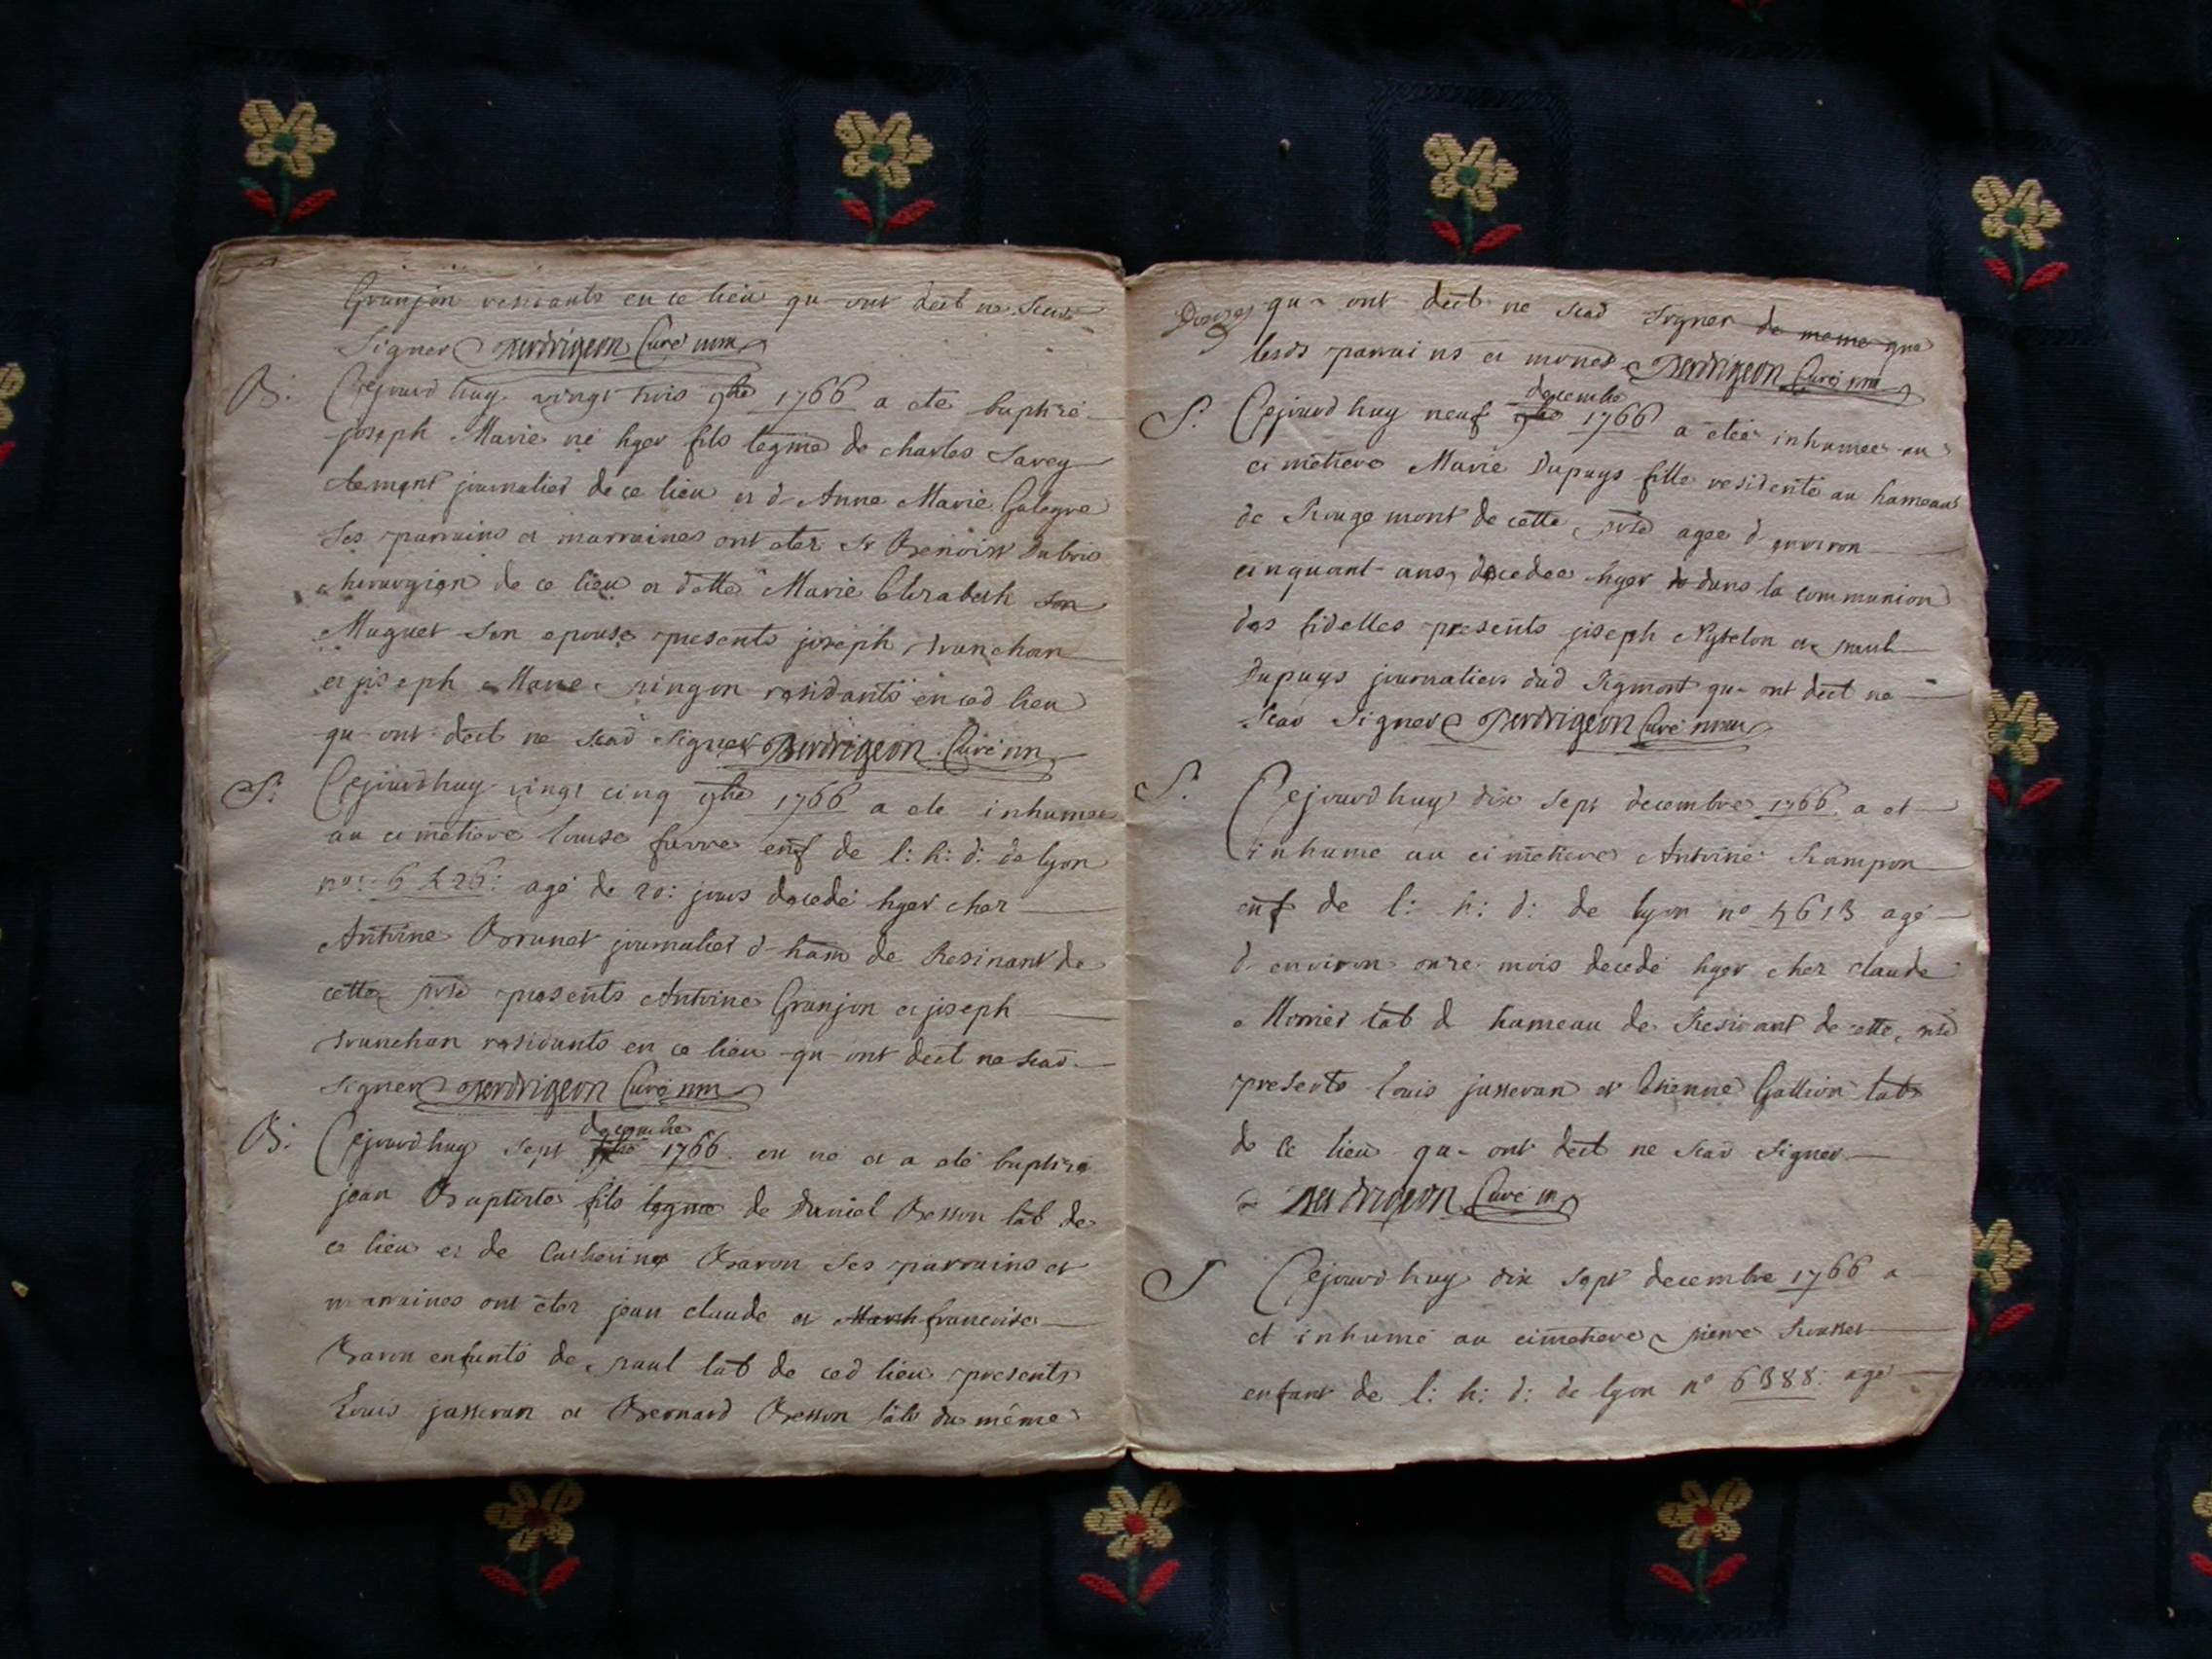 Granjon residants en ce lieu qu-ont déct ne Scav
Signer Perdrigeon Curé
B: Cejourdhuy vingt trois 9bre 1766 a eté baptizé
joseph Marie né hyer fils legme de charles Savey
journalier de ce lieu et d-Anne Marie Galegre
Ses parrains et marraines ont etez Sr Benoist Dubois
chirurgien de ce lieu et dlle Marie Elizabeth Son
Muguet Son epouse presents joseph Tranchan
et joseph Marie pingon residants en ced lieu
qu-ont déct ne Scav Signer Perdrigeon Curé
S: Cejourdhuy vingt cinq 9bre 1766 a ete inhumée
au cimetiere louise favre enf de l: h: d: de lyon
no: agé de 20: jours decedé hyer chez
Antoine Brunet journalier d-ham de Resinant de
cette psse presents Antoine Granjon et joseph
Tranchan residants en ce lieu qu-ont déct ne Scav
Signer Perdrigeon Curé
decembre
B: Cejourdhuy Sept 1766 en né et a eté baptizé
jean Baptiste fils legme de Daniel Besson lab de
ce lieu et de Catherine Baron Ses parrains et
marraines ont etez jean claude et francoise
Baron enfants de paul lab de ced lieu presents
Louis jasseran et Bernard Besson labs du même
qu-ont déct ne Scav Signer de meme que
lesds parrains et Perdrigeon Curé
decembre
S: Cejourdhuy neuf 9bre 1766 a etée inhumee au
cimetiere Marie Dupuys fille residente au hameau
de Rougemont de cette psse agee d-environ
cinquant- ans, decedee hyer dans la communion
des fidelles presents joseph et paul
Dupuys journaliers dud Rgmont qu-ont déct ne
Scav Signer Perdrigeon Curé
S: Cejourdhuy dix Sept decembre 1766 a et
inhumé au cimetiere Antoine Rampon
enf de l: h: d: de lyon no 4613 agé
d-environ onze mois decedé hyer chez claude
lab d hameau de Resinant de cette psse
presents louis jasseran et Etienne Gallion labs
de ce lieu qu-ont déct ne Scav Signer
Perdrigeon Curé
S Cejourdhuy dix Sept decembre 1766 a
et inhumé au cimetiere pierre Rousset
enfant de l: h: d: de lyon no 6388: agé